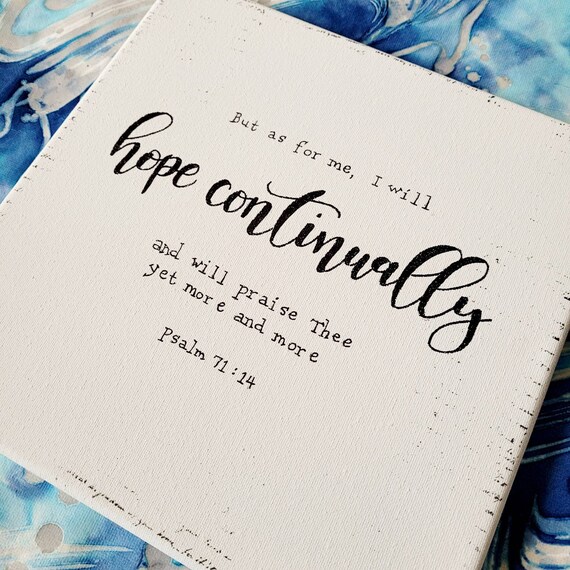 But as for me, I will
hope continually
and will praise Thee
yet more and more
Psalm 71:14